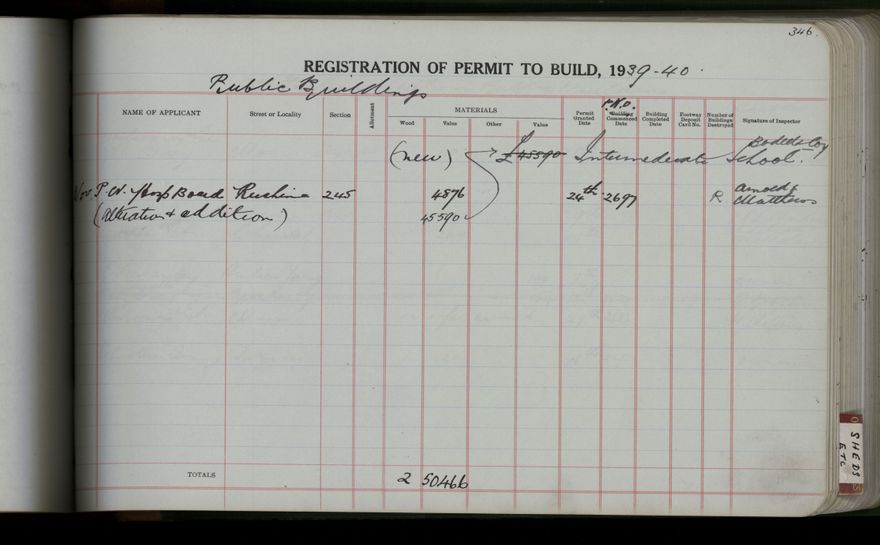 346.
REGISTRATION OF PERMIT TO BUILD, 1939-40.
Public Buildings
NAME OF APPLICANT
Street or Locality
Section
Allotment
MATERIALS
Wood
Value
Other
Value
Permit Granted Date
P.N.O.
Building Commenced Date
Building Completed Date
Footway Deposit Card No.
Number of Buildings Destroyed
Signature of Inspector
(new) £45590 Intermediate School.
Nov P. N. Hosp Board Ruahine 245 4876 24th 2697 R Arnold & Matthews
(Alteration & addition) 45590
TOTALS 2 50466
SHEDS
ETC